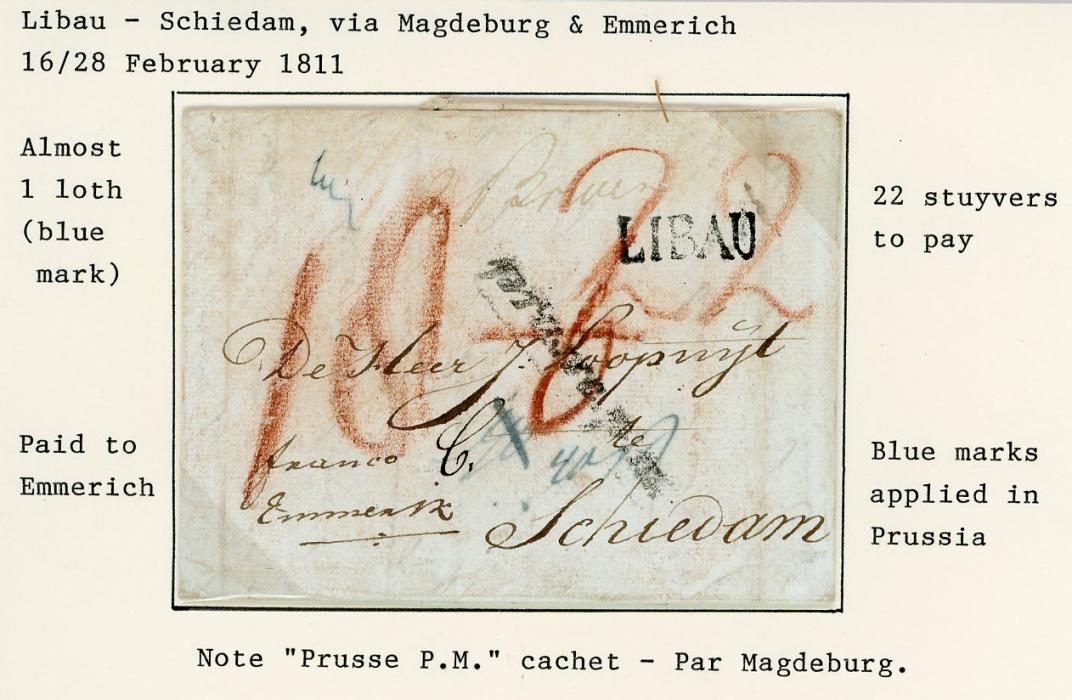 Libau - Schiedam, via Magdeburg & Emmerich
16/28 February 1811
Almost
1 loth
(blue
mark)
22 stuyvers
to pay
22
LIBAU
De Heer J. Loopuijt
C.
te
franco
Emmerik
Schiedam
Paid to
Emmerich
Blue marks
applied in
Prussia
Note "Prusse P.M." cachet - Par Magdeburg.